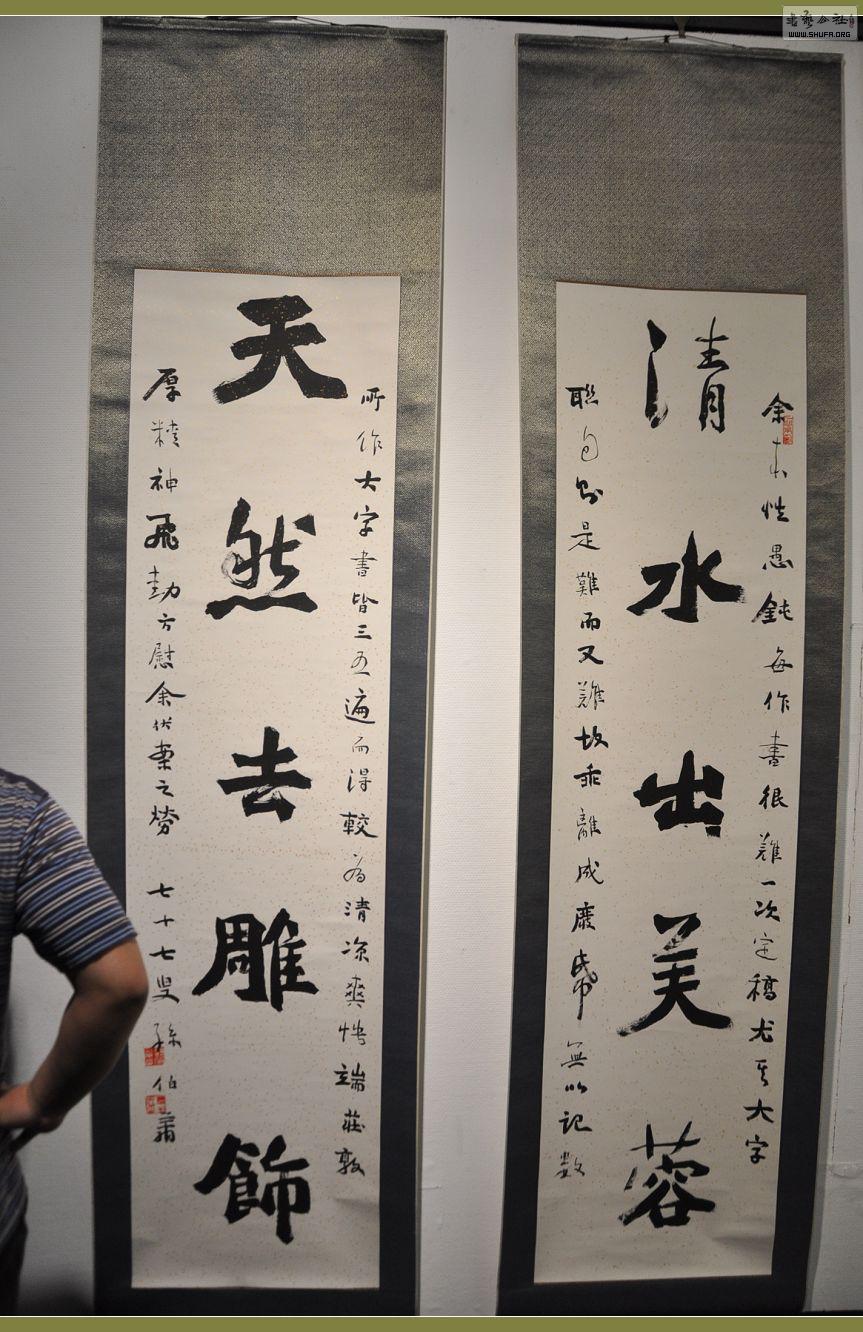 清水出芙蓉
余本性愚鈍每作書很難一次定稿尤其大字
聯句則是難而又難故乖離成廢幣無以記數
天然去雕飾
所作大字書皆三五遍而得較為清涼爽快端莊敦
厚精神飛動方慰余伏案之勞 七十七叟孫伯
WWW.SHUFA.ORG